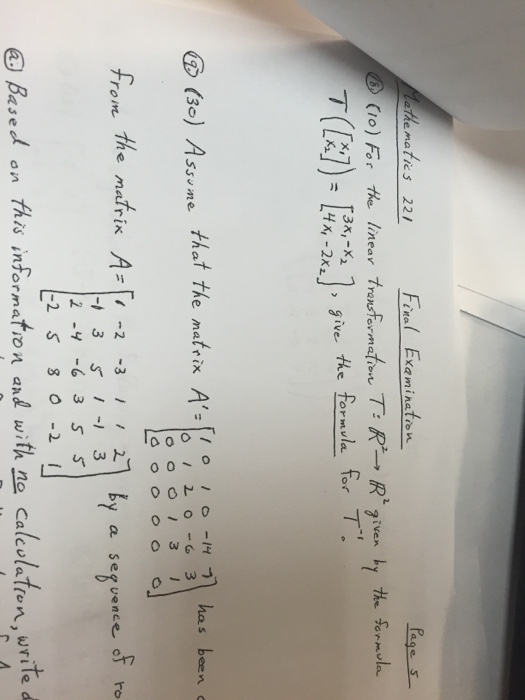 Mathematics 221 Final Examination Page 5
⑧ (10) For the linear transformation T: R² → R² given by the formula
T([x₁
x₂]) = [3x₁-x₂
4x₁-2x₂], give the formula for T⁻¹.
⑨ (30) Assume that the matrix A' = [1 0 1 0 -14 7
0 1 2 0 -6 3
0 0 0 1 3 1
0 0 0 0 0 0] has been
from the matrix A = [1 -2 -3 1 1 2
-1 3 5 1 -1 3
2 -4 -6 3 5 5
-2 5 8 0 -2 1] by a sequence of ro
ⓐ.) Based on this information and with no calculation, write